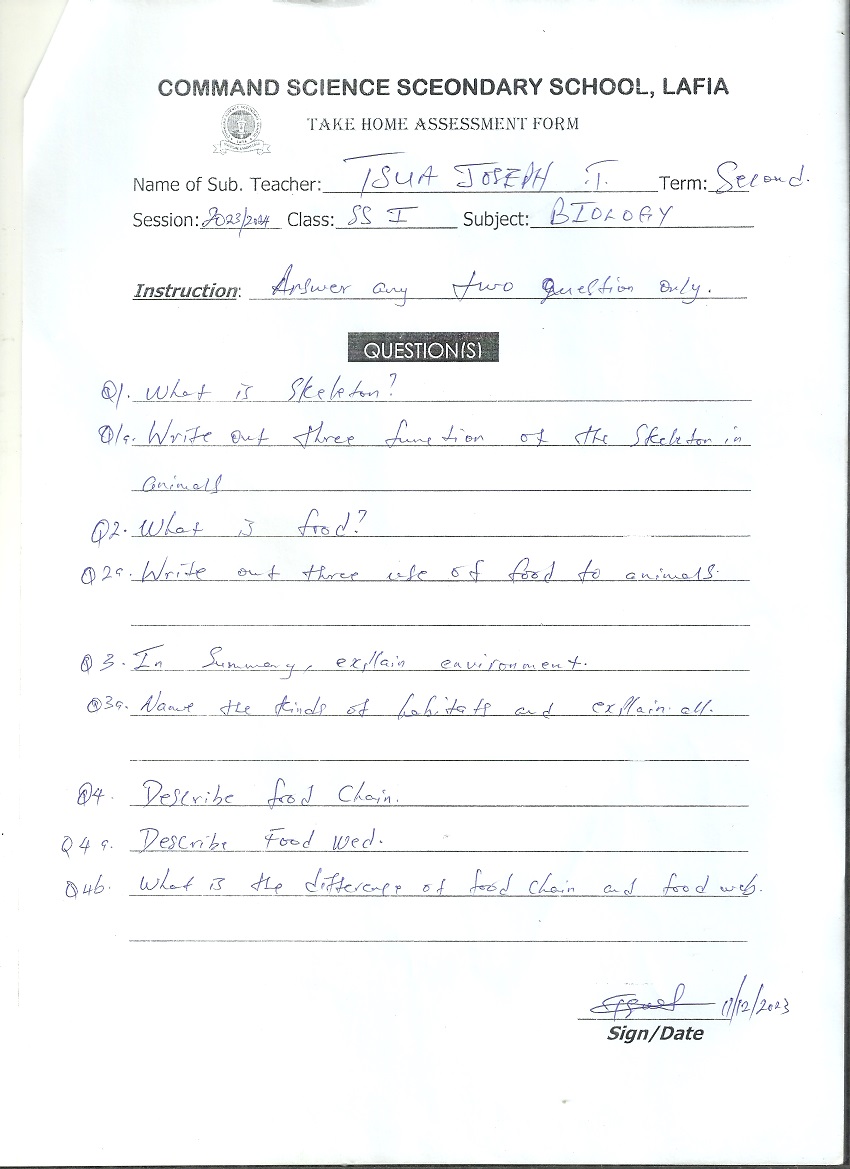 COMMAND SCIENCE SCEONDARY SCHOOL, LAFIA
TAKE HOME ASSESSMENT FORM
Name of Sub. Teacher: TSUA JOSEPH .T. Term: Second.
Session: 2023/2024 Class: SS I Subject: BIOLOGY
Instruction: Answer any two question only.
QUESTION(S)
Q1. What is Skeleton?
Q1a. Write out three function of the Skeleton in
animals
Q2. What is food?
Q2a. Write out three use of food to animals.
Q3. In Summary, explain environment.
Q3a. Name the kinds of habitats and explain all.
Q4. Describe food Chain.
Q4a. Describe Food Wed.
Q4b. What is the difference of food chain and food web.
11/12/2023
Sign/Date